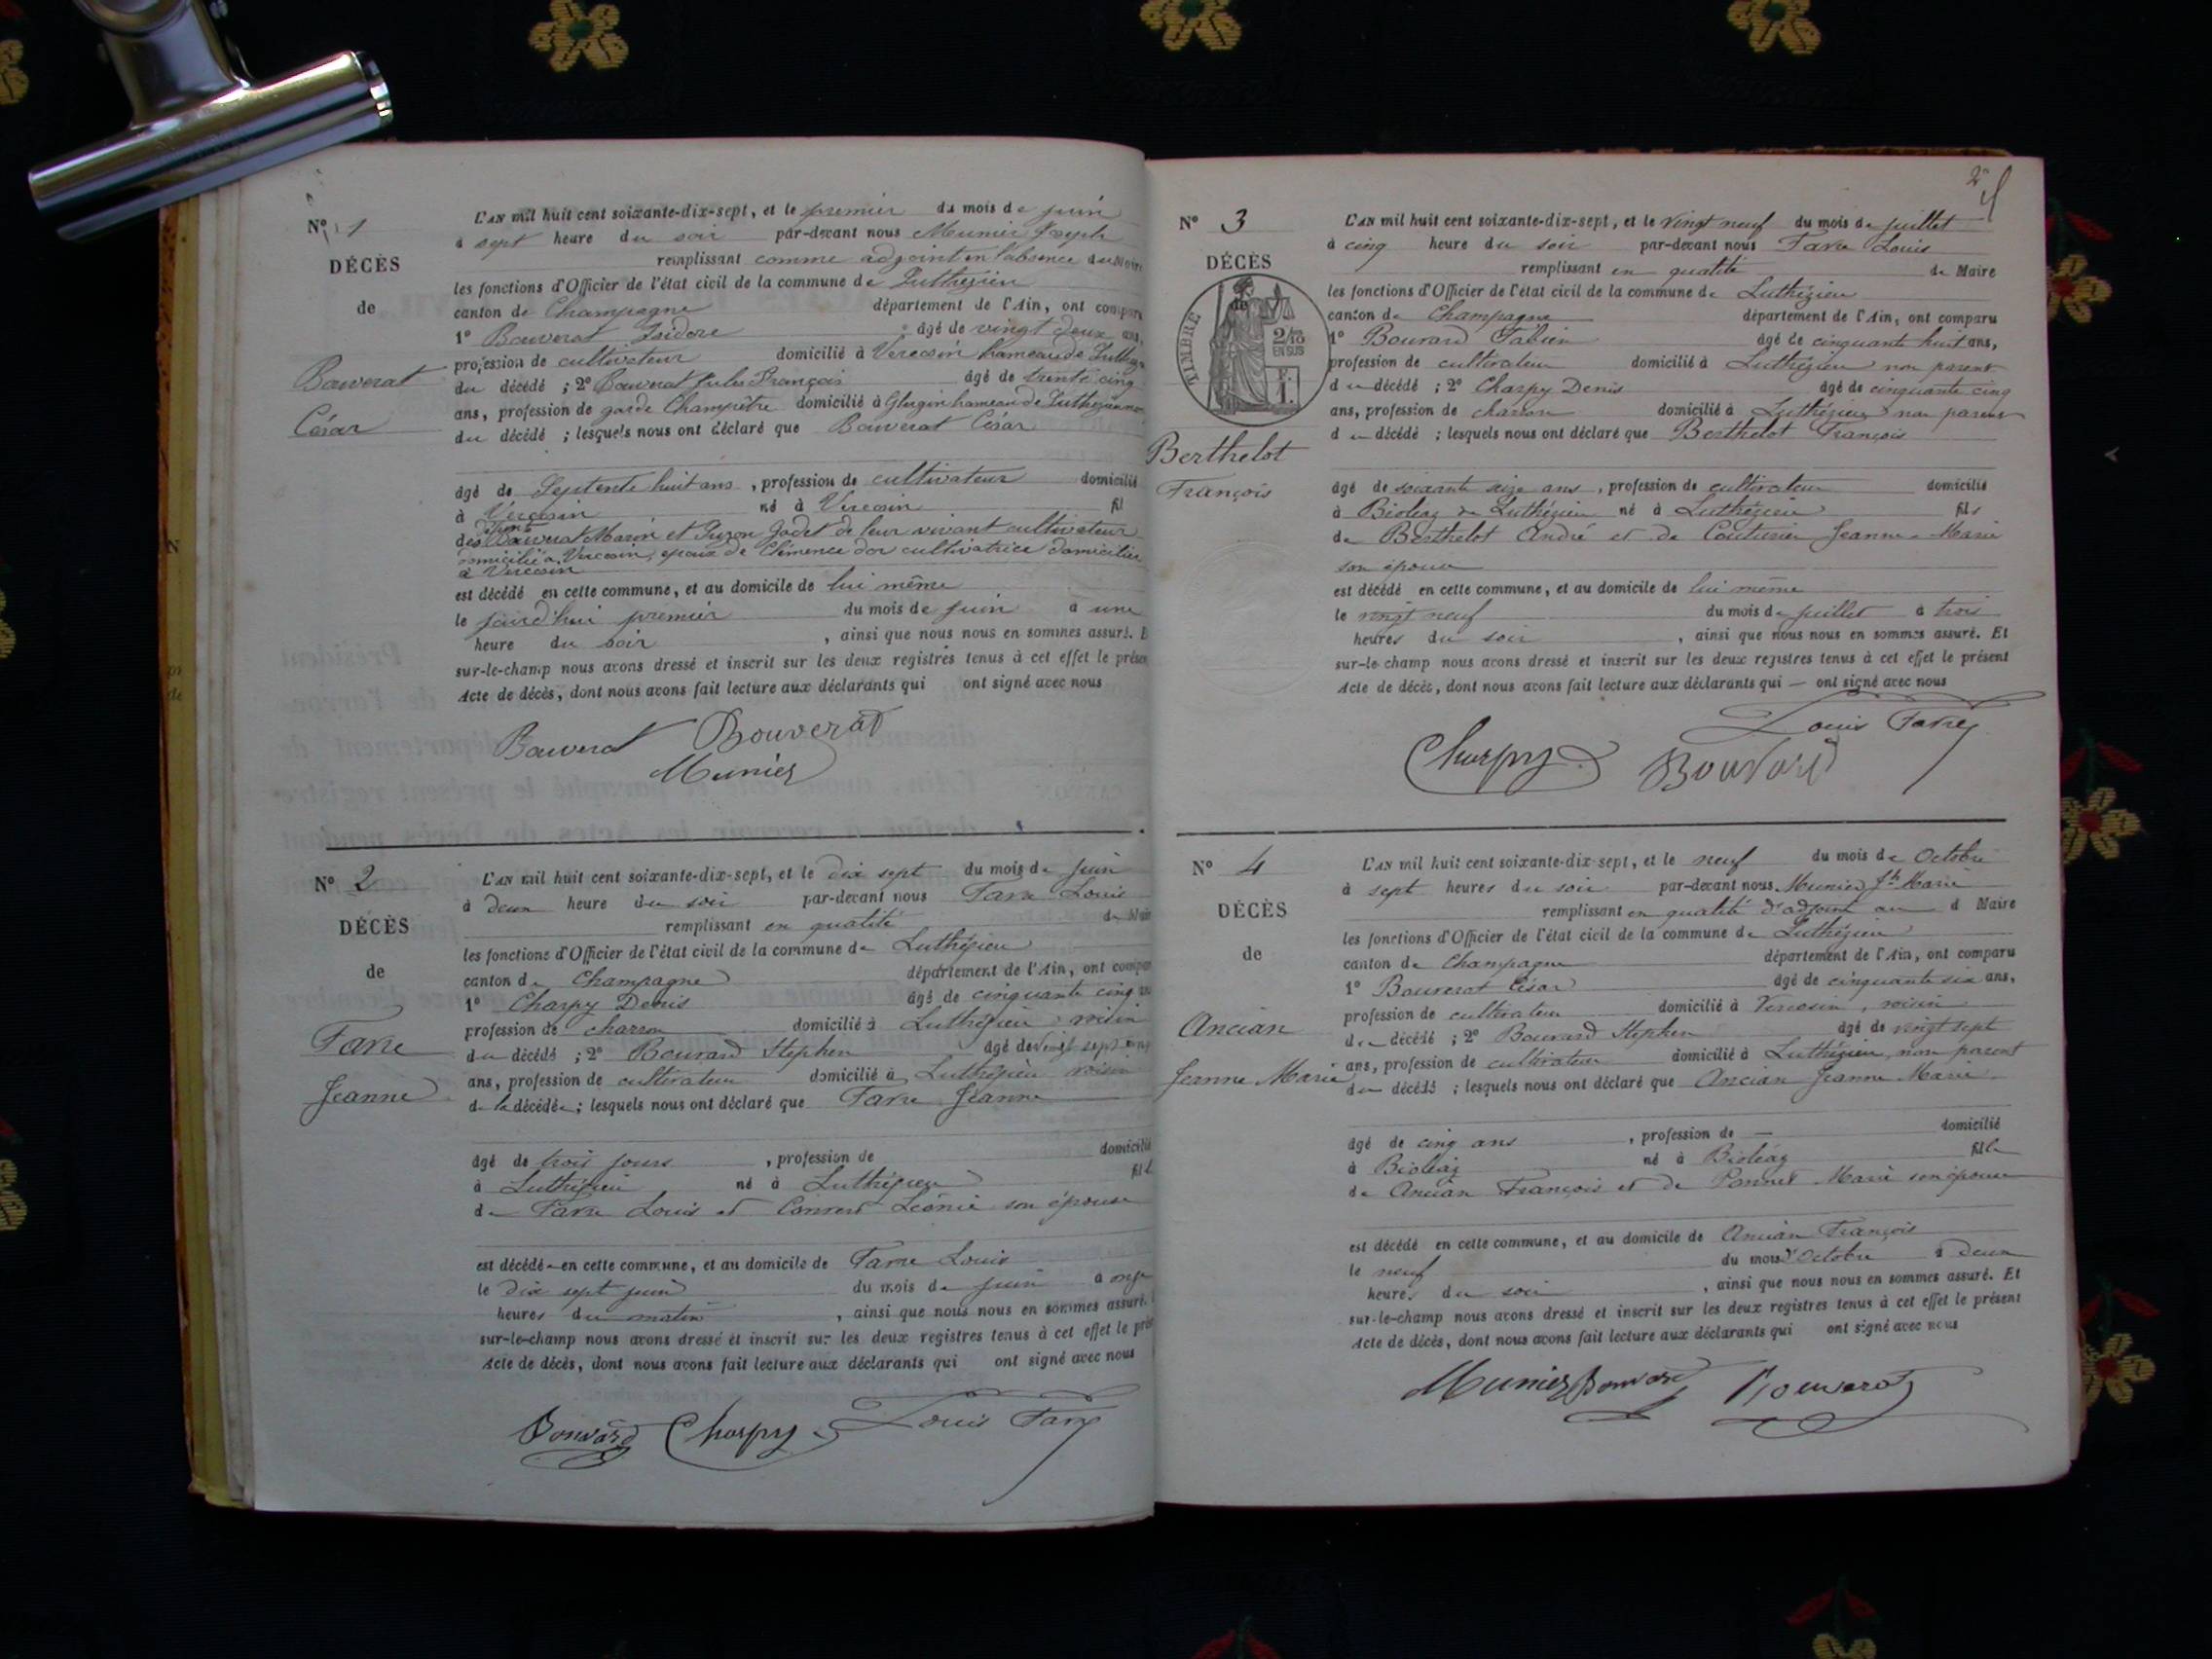 N° 1
DÉCÈS
de
Bouverat
César
L'AN mil huit cent soixante-dix-sept, et le premier du mois de juin
à sept heure du soir par-devant nous Meunier Joseph
remplissant comme adjoint en l'absence du Maire
les fonctions d'Officier de l'état civil de la commune de Luthézieu
canton de Champagne département de l'Ain, ont comparu
1° Bouverat Isidore âgé de vingt deux ans,
profession de cultivateur domicilié à Vercosin hameau de
du décédé ; 2° Bouverat Jules François âgé de trente cinq
ans, profession de garde Champêtre domicilié à hameau de
du décédé ; lesquels nous ont déclaré que Bouverat César
âgé de Septente huit ans , profession de cultivateur domicilié
à Vercosin né à Vercosin fil
des Bouverat Marin et Suzon Godet de leur vivant cultivateur
domicilié à Vercosin, epoux de Clémence dor cultivatrice domicilier
à Vercosin
est décédé en cette commune, et au domicile de lui même
le jourd'hui premier du mois de juin à une
heure du soir , ainsi que nous nous en sommes assuré. E
sur-le-champ nous avons dressé et inscrit sur les deux registres tenus à cet effet le présen
Acte de décès, dont nous avons fait lecture aux déclarants qui ont signé avec nous
Bouverat Bouverat
Munier
N° 2
DÉCÈS
de
Favre
Jeanne
L'AN mil huit cent soixante-dix-sept, et le dix sept du mois de juin
à deux heure du soir par-devant nous Favre Louis
remplissant en qualité de Mair
les fonctions d'Officier de l'état civil de la commune de Luthézieu
canton de Champagne département de l'Ain, ont compar
1° Charpy Denis âgé de cinquante cinq
profession de charron domicilié à Luthézieu voisin
du décédé ; 2° Bouvard Stephen âgé de vingt sept ans
ans, profession de cultivateur domicilié à Luthézieu voisin
de la décédée ; lesquels nous ont déclaré que Favre Jeanne
âgé de trois jours , profession de domicilié
à Luthézieu né à Luthézieu fil
de Favre Louis et Léonie son épouse
est décédée en cette commune, et au domicile de Favre Louis
le dix sept juin du mois de juin à onze
heures du matin , ainsi que nous nous en sommes assuré.
sur-le-champ nous avons dressé et inscrit sur les deux registres tenus à cet effet le prés
Acte de décès, dont nous avons fait lecture aux déclarants qui ont signé avec nous
Bouvard Charpy Louis Favre
N° 3
DÉCÈS
de
TIMBRE
2/10
EN SUS
F.
1.
Berthelot
François
L'AN mil huit cent soixante-dix-sept, et le vingt neuf du mois de juillet
à cinq heure du soir par-devant nous Favre Louis
remplissant en qualité de Maire
les fonctions d'Officier de l'état civil de la commune de Luthézieu
canton de Champagne département de l'Ain, ont comparu
1° Bouvard Fabien âgé de cinquante huit ans,
profession de cultivateur domicilié à Luthézieu non parent
du décédé ; 2° Charpy Denis âgé de cinquante cinq
ans, profession de charron domicilié à Luthézieu non parent
du décédé ; lesquels nous ont déclaré que Berthelot François
âgé de soixante seize ans , profession de cultivateur domicilié
à Bioléaz de Luthézieu né à Luthézieu fils
de Berthelot André et de Couturier Jeanne-Marie
son épouse
est décédé en cette commune, et au domicile de lui même
le vingt neuf du mois de juillet à trois
heures du soir , ainsi que nous nous en sommes assuré. Et
sur-le-champ nous avons dressé et inscrit sur les deux registres tenus à cet effet le présent
Acte de décès, dont nous avons fait lecture aux déclarants qui — ont signé avec nous
Louis Favre
Charpy Bouvard
N° 4
DÉCÈS
de
Ancian
Jeanne Marie
L'AN mil huit cent soixante-dix-sept, et le neuf du mois de Octobre
à sept heures du soir par-devant nous Munier Jh Marie
remplissant en qualité d'adjoint au d Maire
les fonctions d'Officier de l'état civil de la commune de Luthézieu
canton de Champagne département de l'Ain, ont comparu
1° Bouverat César âgé de cinquante six ans,
profession de cultivateur domicilié à Vercosin, voisin
du décédé ; 2° Bouvard Stephen âgé de vingt sept
ans, profession de cultivateur domicilié à Luthézieu, non parent
du décédé ; lesquels nous ont déclaré que Ancian Jeanne Marie
âgé de cinq ans , profession de — domicilié
à Bioléaz né à Bioléaz fille
de Ancian François et de Marie son épouse
est décédé en cette commune, et au domicile de Ancian François
le neuf du mois d'Octobre à deux
heures du soir , ainsi que nous nous en sommes assuré. Et
sur-le-champ nous avons dressé et inscrit sur les deux registres tenus à cet effet le présent
Acte de décès, dont nous avons fait lecture aux déclarants qui ont signé avec nous
Munier Bouvard Bouverat